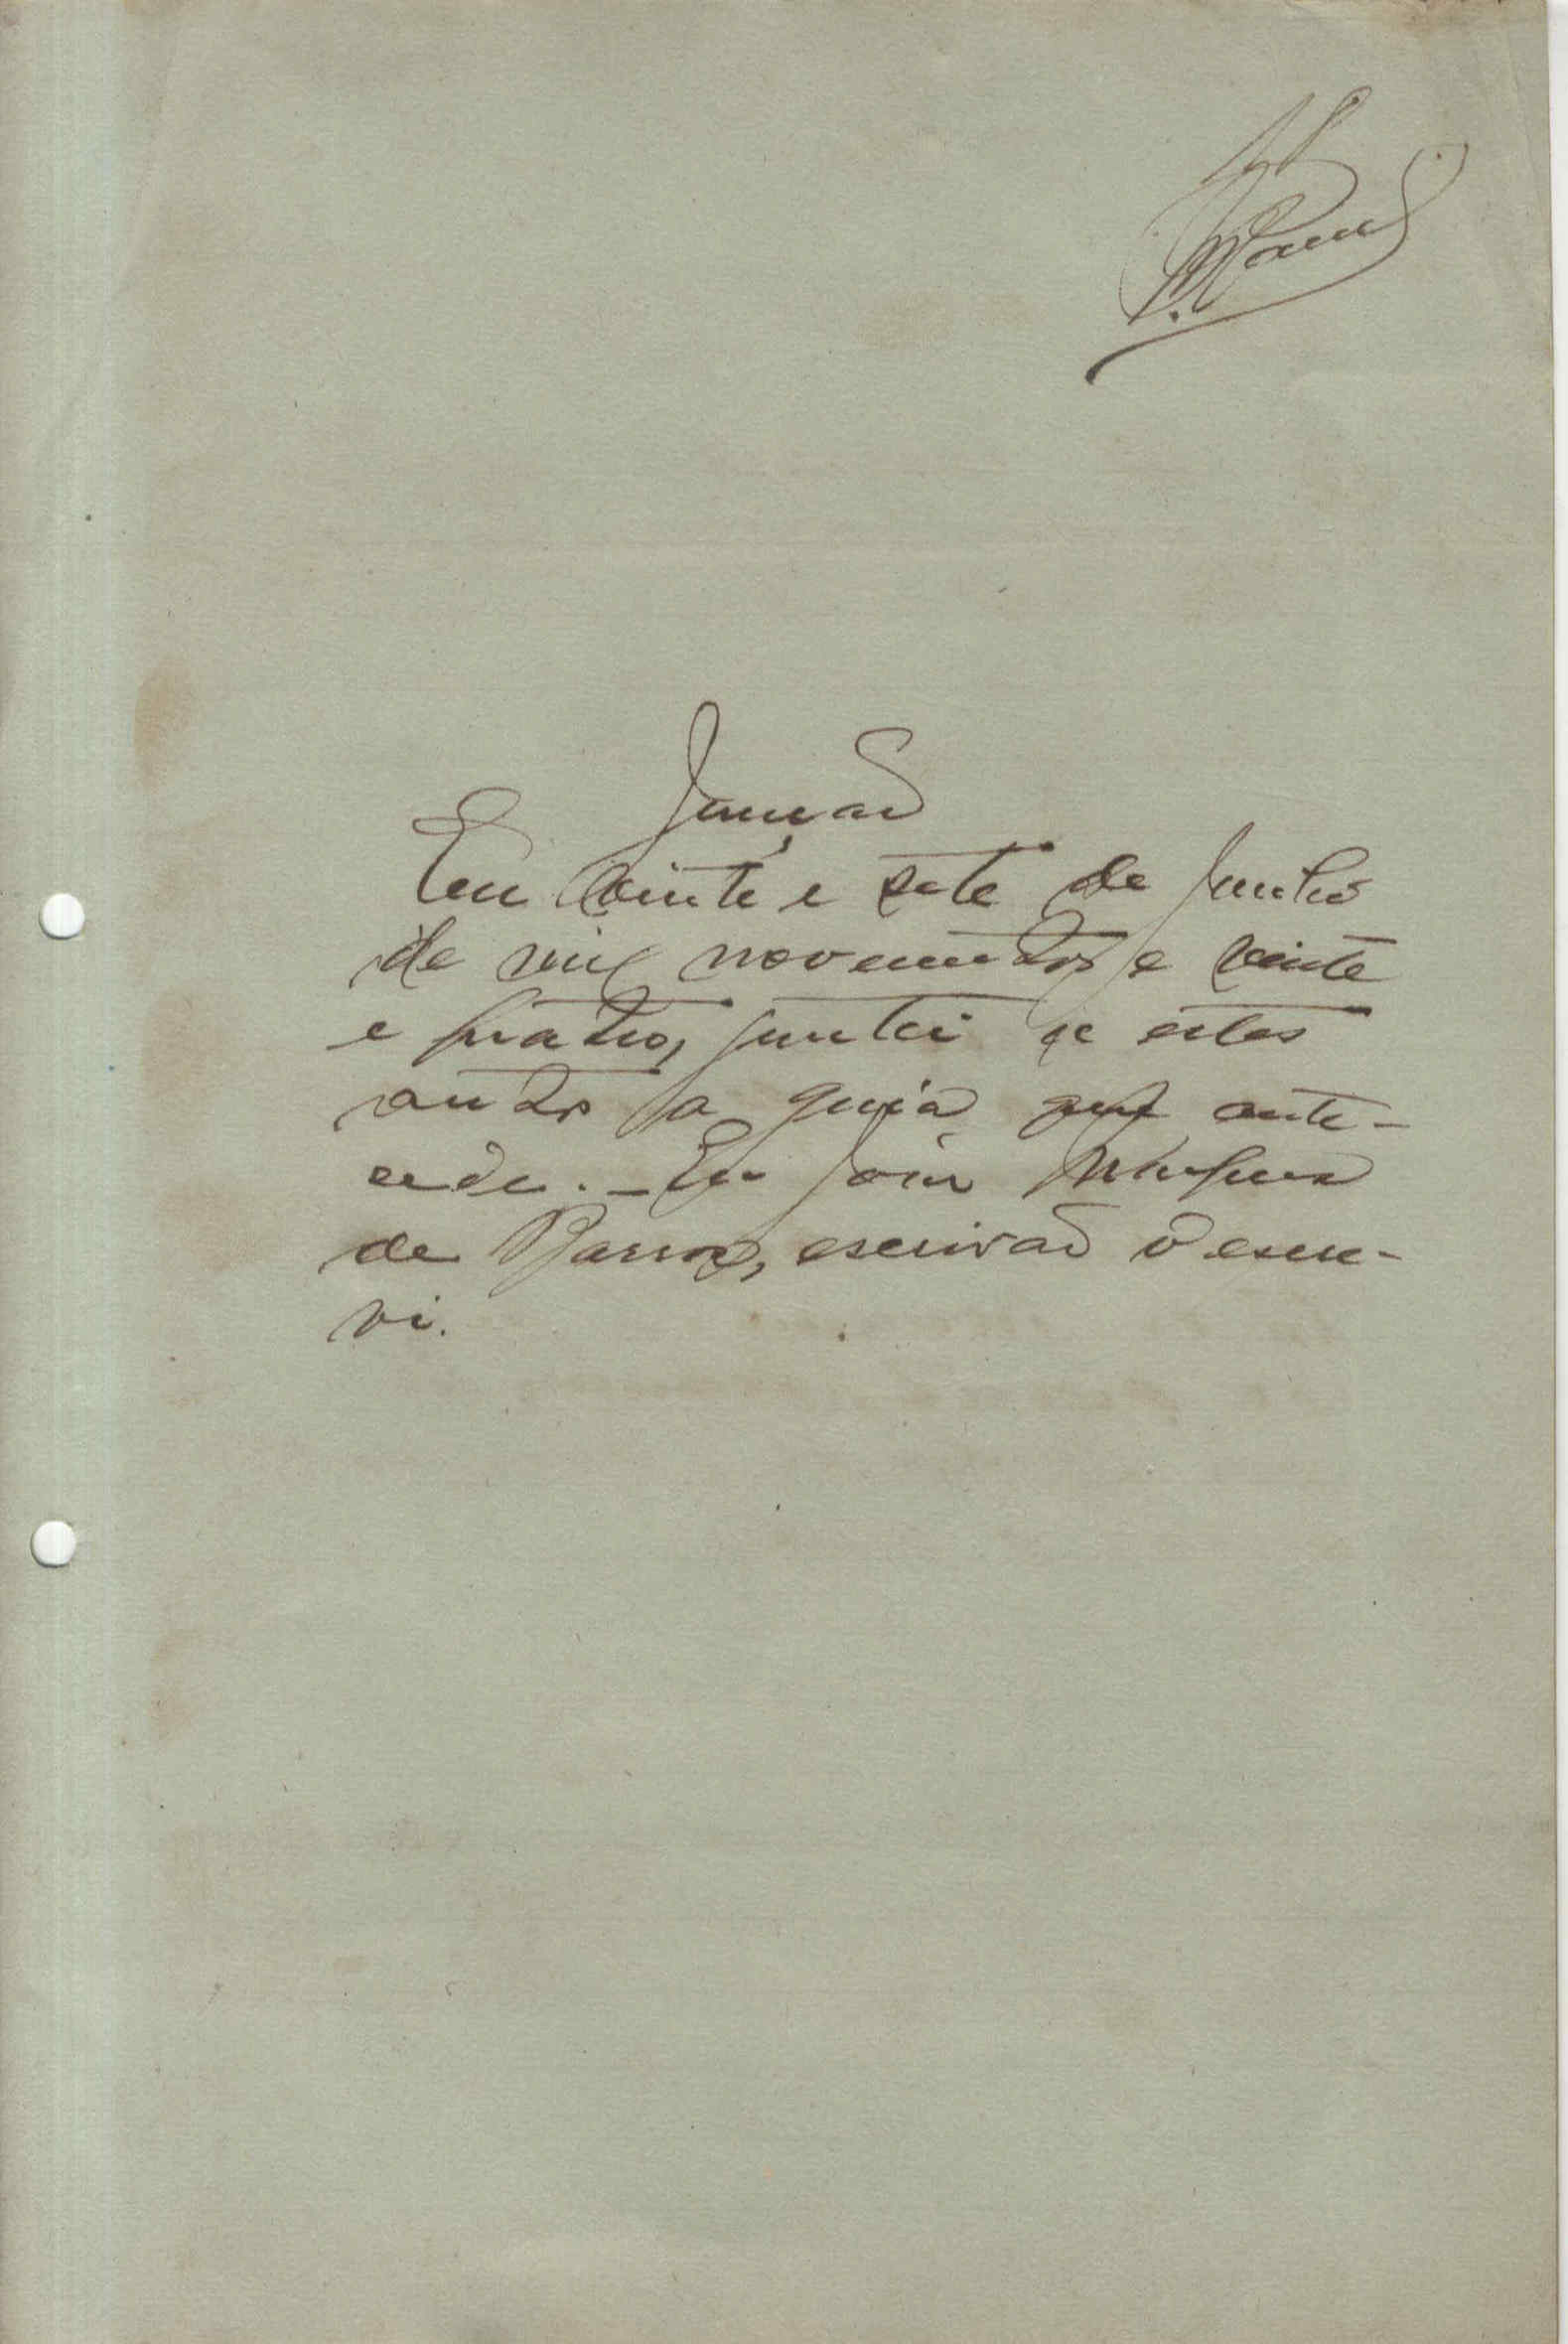 Junção
Em vinte e sete de Junho
de mil novecentos e vinte
e quatro, juntei a estes
autos a guia que ante-
cede. – Eu João
de Barros, escrivão o escre-
vi.